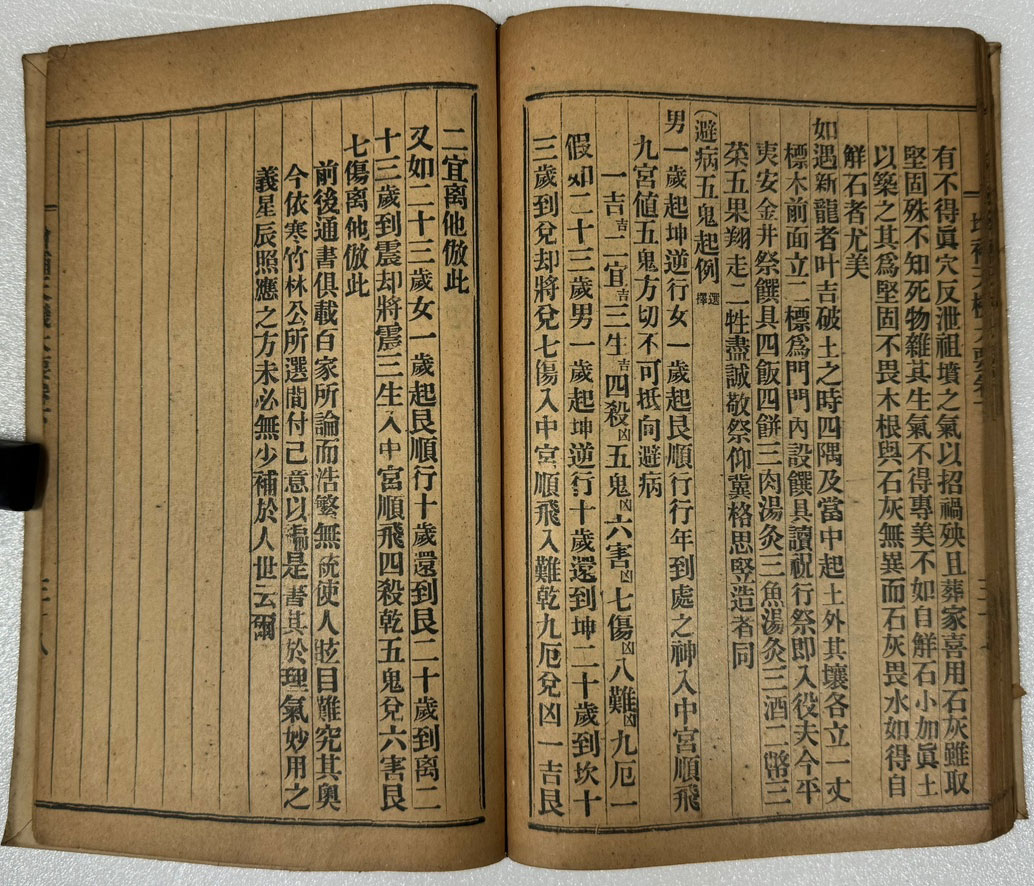 有不得眞穴反泄祖墳之氣以招禍殃且葬家喜用石灰雖取
堅固殊不知死物雜其生氣不得專美不如自鮮石小加眞土
以築之其爲堅固不畏木根與石灰無異而石灰畏水如得自
鮮石者尤美
如遇新龍者叶吉破土之時四隅及當中起土外其壤各立一丈
標木前面立二標爲門門內設饌具讀祝行祭即入役夫今平
夷安金井祭饌具四飯四餠三肉湯灸三魚湯灸三酒二幣三
菜五果翔走二牲盡誠敬祭仰冀格思竪造者同
(避病五鬼起例選擇
男一歲起坤逆行女一歲起艮順行行年到處之神入中宮順飛
九宮値五鬼方切不可抵向避病
一吉吉二宜吉三生吉四殺凶五鬼凶六害凶七傷凶八難凶九厄一
假如二十三歲男一歲起坤逆行十歲還到坤二十歲到坎十
三歲到兌却將兌七傷入中宮順飛入難乾九厄兌凶一吉艮
二宜离他倣此
又如二十三歲女一歲起艮順行十歲還到艮二十歲到离二
十三歲到震却將震三生入中宮順飛四殺乾五鬼兌六害艮
七傷离他倣此
前後通書俱載百家所論而浩繁無統使人眩目難究其奧
今依寒竹林公所選間付己意以編是書其於理氣妙用之
義星辰照應之方未必無少補於人世云爾